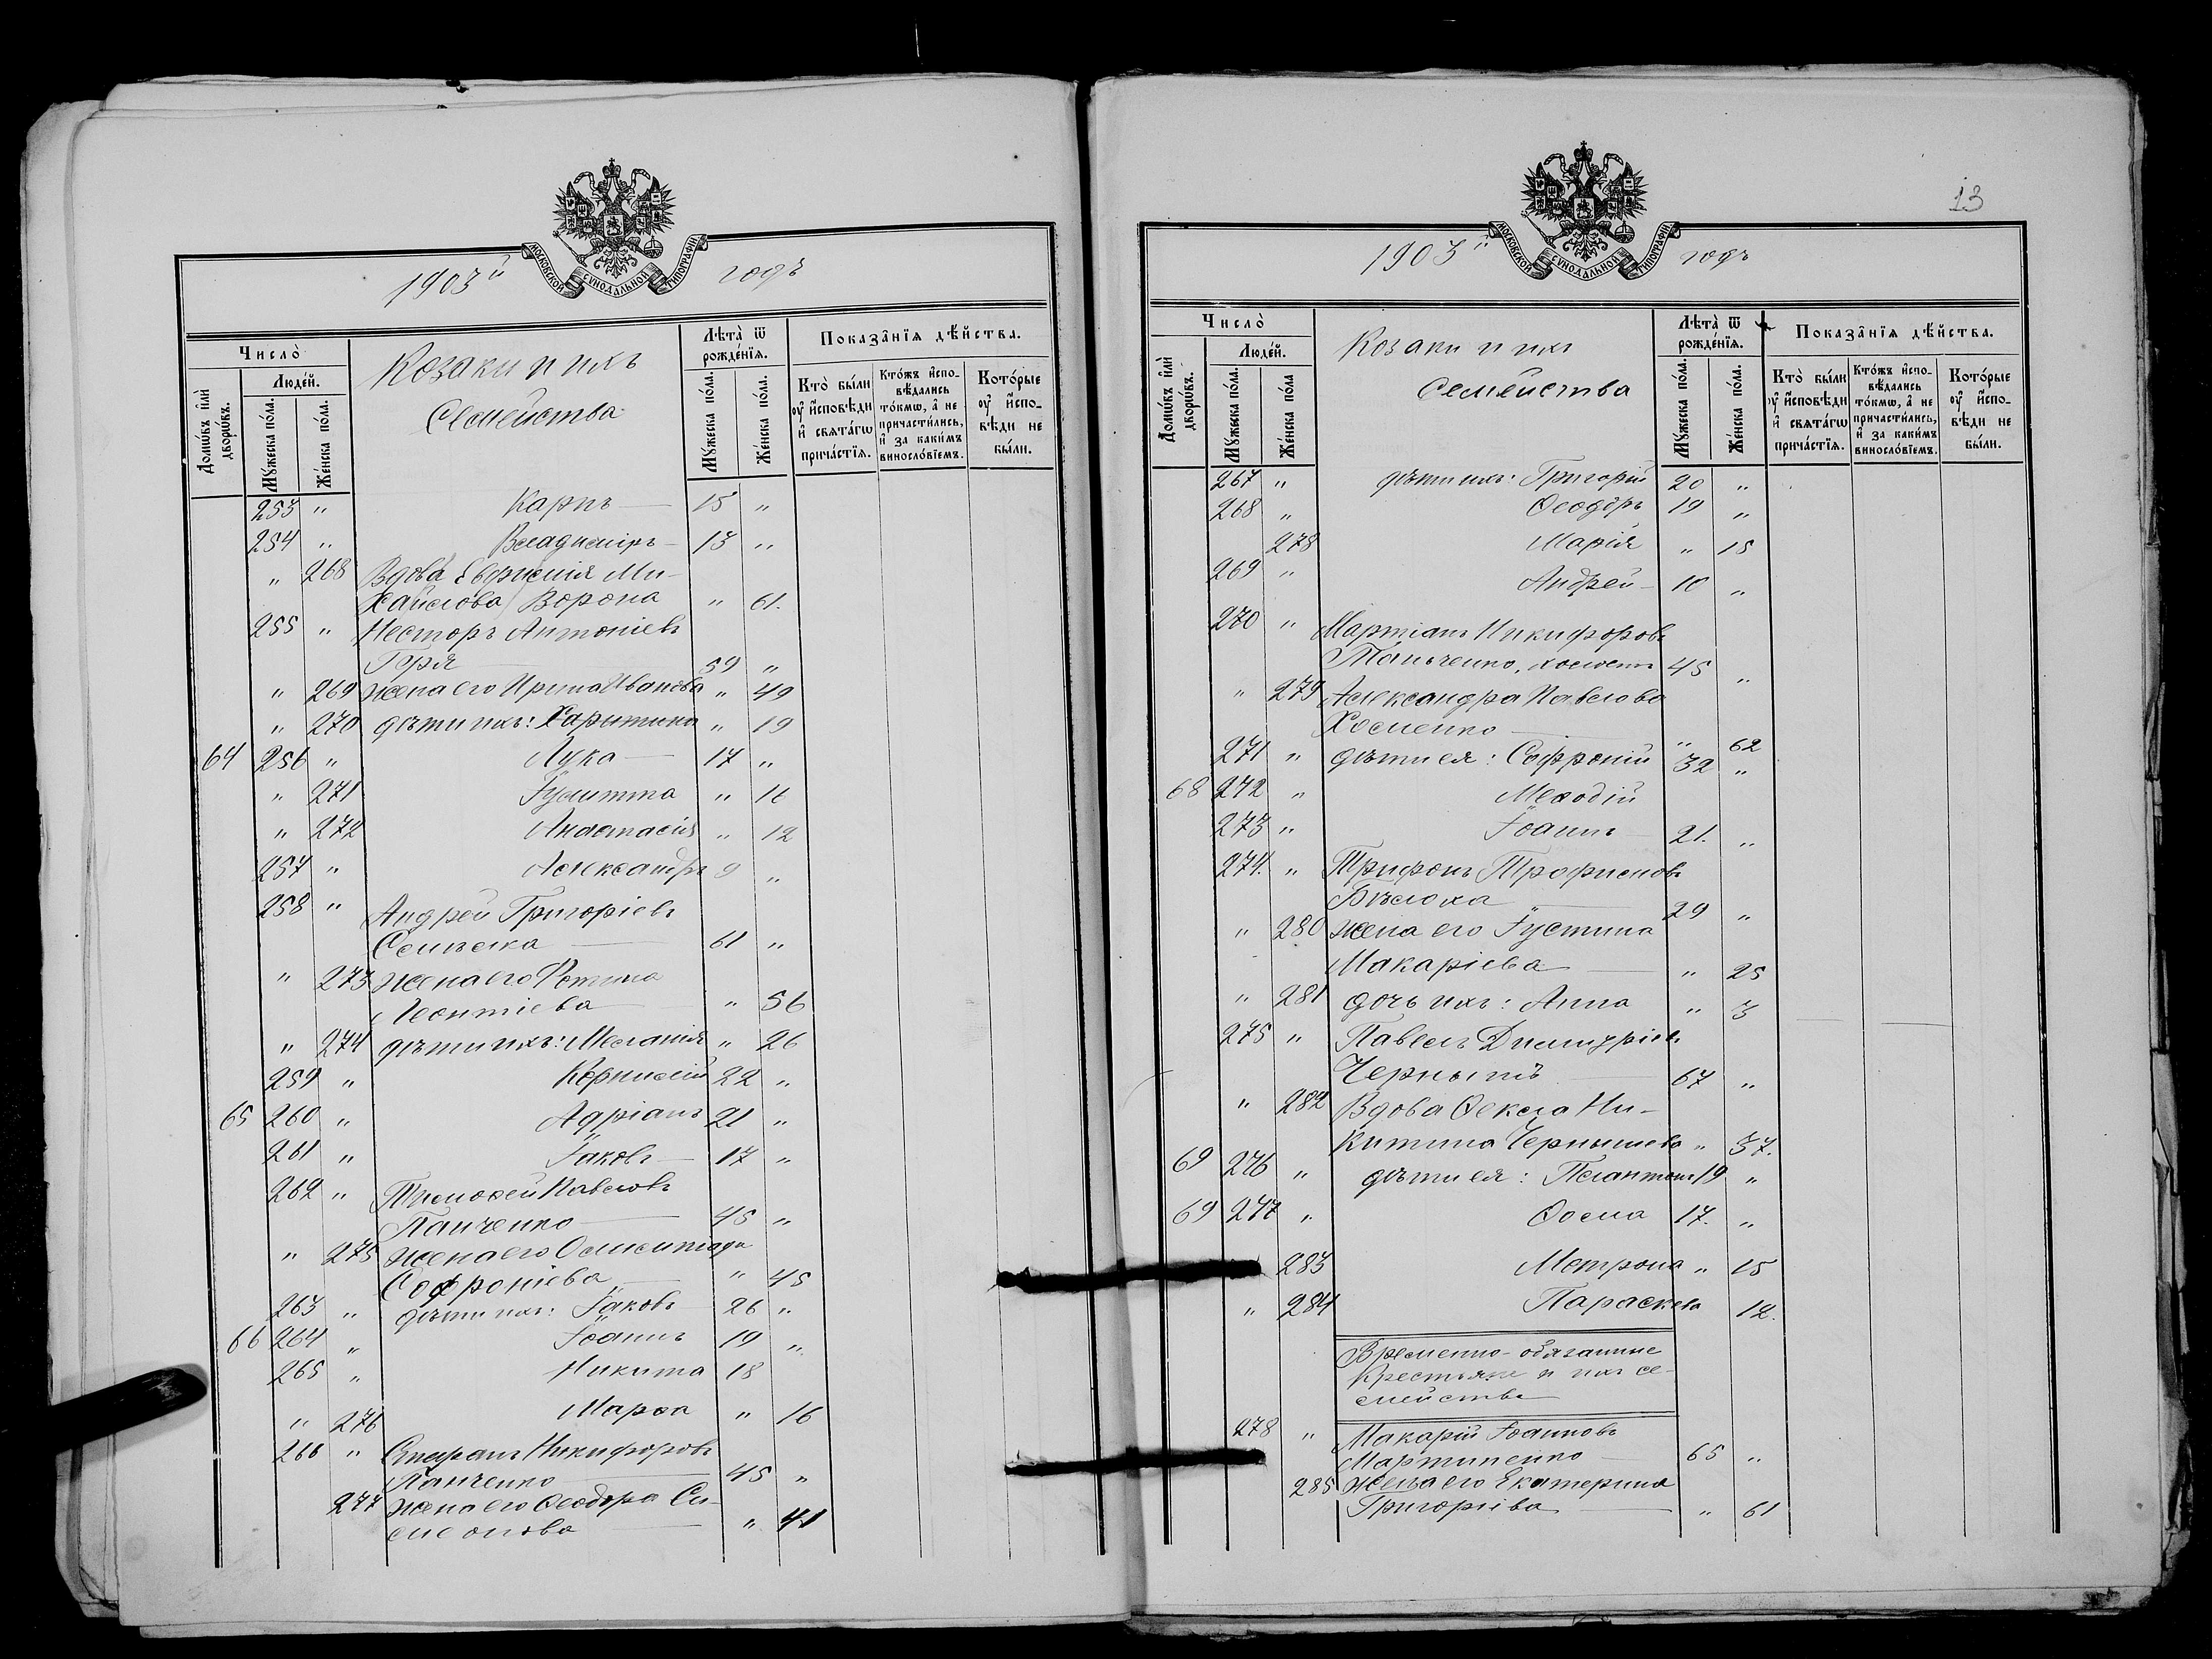 МОСКОВСКОЙ СѴНОДАЛЬНОЙ ТИПОГРАФІИ
1903й годъ
Число̀
Домѡ́въ и҆лѝ дворѡ́въ.
Люде́й.
Мꙋ́жеска по́ла.
Же́нска по́ла.
Козаки и ихъ
Семейства
Лѣта̀ ѿ рожде́нїѧ.
Мꙋ́жеска по́ла.
Же́нска по́ла.
Показа̑нїѧ дѣ́йства.
Кто̀ бы́ли оу҆ и҆́сповѣди и҆ свѧта́гѡ прича́стїѧ.
Кто́жъ и҆спо- вѣ́дались то́кмѡ, а҆ не причасти́лись, и҆ за каки́мъ винослобвїемъ.
Кото́рые оу҆ и҆́спо- вѣди не бы́ли.
253 " Карпъ — 15 "
254 " Владиміръ — 13 "
" 268 Вдова Евфимія Ми-
хайлова Ворона " 61.
255 " Несторъ Антоніевъ
Горя — 59 "
" 269 жена его Ирина Иванова " 49
" 270 дѣти ихъ: Харитина " 19
64 256 " Лука — 17 "
" 271 Іулитта " 16
" 272 Анастасія " 12
257 " Александръ 9 "
258 " Андрей Григоріевъ
— 61 "
" 273 жена его Фотина
Леонтіева — " 56
" 274 дѣти ихъ: Меланія " 26
259 " Корнилій 22 "
65 260 " Адріанъ 21 "
261 " Іаковъ — 17 "
262 " Тимоѳей Павловъ
Панченко — 45 "
" 275 жена его
Софроніева — " 45
263 " дѣти ихъ: Іаковъ 26 "
66 264 " Іоаннъ 19 "
265 " Никита 18
" 276 Марѳа " 16
266 " Стефанъ Никифоровъ
Панченко — 45 "
277 жена его Ѳеодора Си-
меонова — " 41
13
МОСКОВСКОЙ СѴНОДАЛЬНОЙ ТИПОГРАФІИ
1903й годъ
Число̀
Домѡ́въ и҆лѝ дворѡ́въ.
Люде́й.
Мꙋ́жеска по́ла.
Же́нска по́ла
Козаки и ихъ
Семейства
Лѣта̀ ѿ рожде́нїѧ.
Мꙋ́жеска по́ла.
Же́нска по́ла.
Показа̑нїѧ дѣ́йства.
Кто̀ бы́ли оу҆ и҆́сповѣди и҆ свѧта́гѡ прича́стїѧ.
Кто́жъ и҆спо- вѣ́дались то́кмѡ, а҆ не причасти́лись, и҆ за каки́мъ винослобвїемъ.
Кото́рые оу҆ и҆́спо- вѣди не бы́ли.
267 " дѣти ихъ: Григорій 20 "
268 " Ѳеодоръ 19 "
278 Марія " 15
269 " Андрей — 10 "
270 " Мартіанъ Никифоровъ
холостъ 45 "
" 279 Александра Павлова
Хоменко — " 62
271 " дѣти ея: Софроній 32 "
68 272 " Меѳодій
273 " Іоаннъ — 21. "
274. " Трифонъ Трофимовъ
Бѣлоха — 29 "
" 280 жена его Іустина
Макаріева — " 25
" 281 дочь ихъ: Анна " 3
275 " Павелъ Димитріевъ
Чернышъ — 67 "
" 282 Вдова Ѳекла Ни-
китина Чернышева " 37.
69 276 " дѣти ея: 19 "
69 277 " Ѳома 17. "
283 Метрона " 15
" 284 Параскева 12.
Временно-обязанные
Крестьяне и ихъ се-
мейства
278 " Макарій Іоанновъ
Мартиненко — 65 "
285 жена его Екатерина
Григоріева — " 61